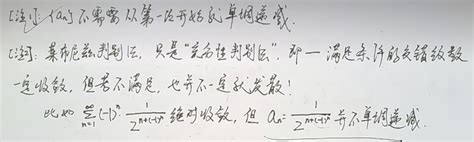 [注1]: {an} 不需要从第一次开始就单调递减.
[注2]: 莱布尼兹判别法, 只是"充分性判别法", 即一满足条件的交错级数
一定收敛, 但若不满足, 也并不一定就发散!
比如 \sum_{n=1}^{\infty} (-1)^n \cdot \frac{1}{2^{n+(-1)^n}} 绝对收敛, 但 a_n = \frac{1}{2^{n+(-1)^n}} 并不单调递减.